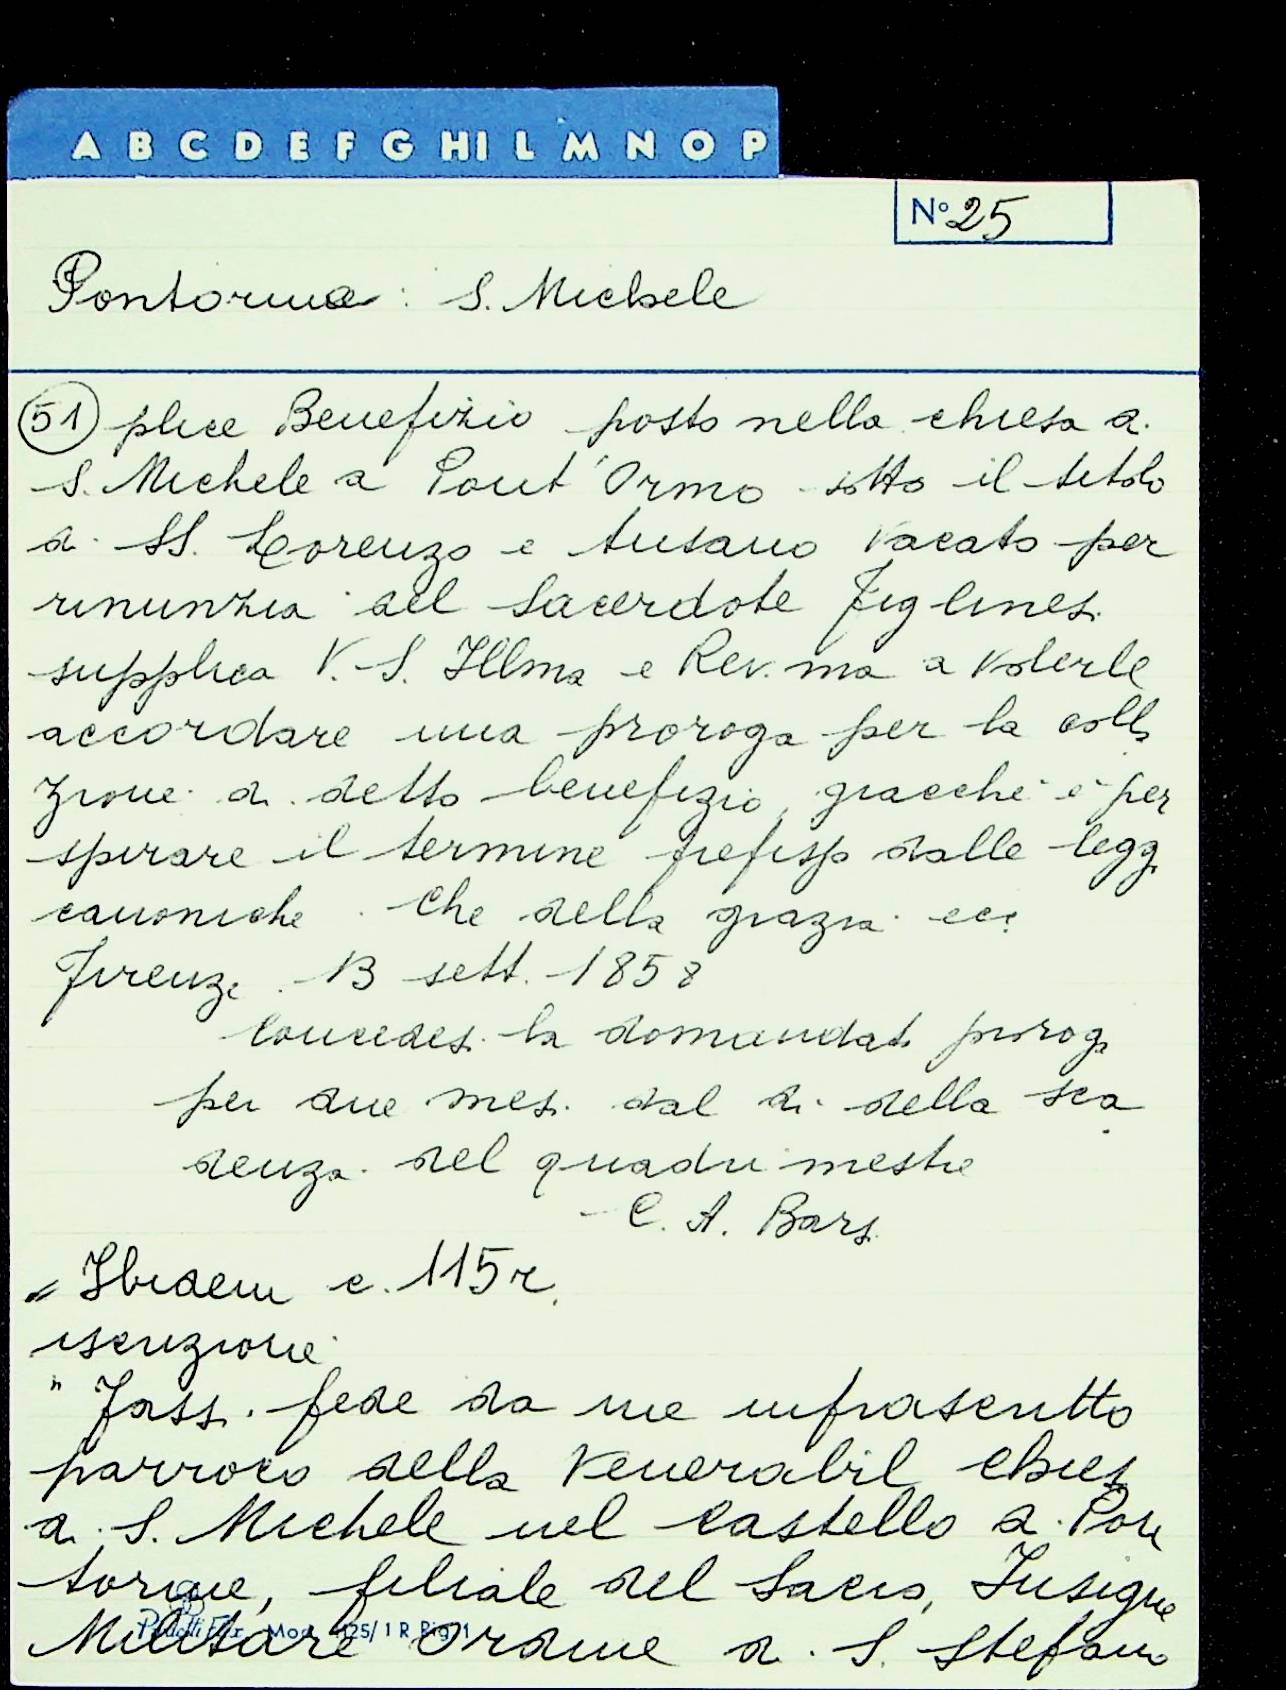 A B C D E F G HI L M N O P
N° 25
Pontorme: S. Michele
51 plice Benefizio posto nella chiesa di
S. Michele a Pont'Ormo sotto il titolo
di SS. Lorenzo e Ansano vacato per
rinunzia del Sacerdote Figlinesi
supplica V. S. Illma e Rev.ma a volerle
accordare una proroga per la colla
zione di detto benefizio, giacché è per
spirare il termine prefisso dalle leggi
canoniche. Che della grazia ecc.
Firenze 13 sett. 1858
Concedesi la domandata proroga
per due mesi dal dì della sca
denza del quadrimestre
C. A. Barsi
" Ibidem c. 115r.
iscrizione
" Fassi fede da me infrascritto
parroco della Venerabil chiesa
di S. Michele nel Castello di Pon
torme, filiale del Sacro, Insigne
Militare Ordine di S. Stefano
Mod. 125/1 R Rig. 1